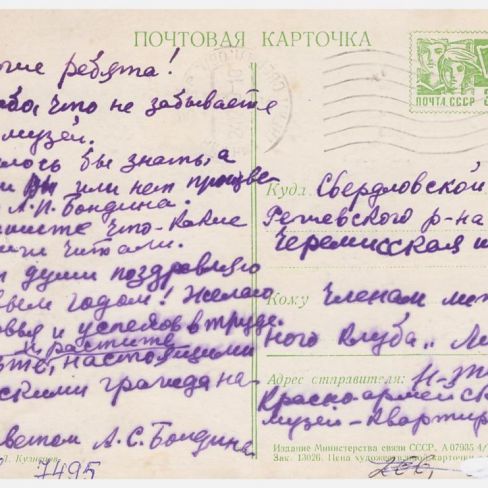 ПОЧТОВАЯ КАРТОЧКА
ПОЧТА СССР
ребята!
что не забываете
музей.
лось бы знать, а
Вы или нет произве-
А.П. Бондина.
шите что-какие
читали.
души поздравляю
вым годом! Желаю
вья и успехов в труде.
и растите
настоящими
скими граждана-
ветом А.С. Бондина
Куда Свердловской
Режевского р-на
Черемисская ш
Кому Членам лите
ного клуба „Ли
Адрес отправителя: Н-Т
Красно-армейск
музей-квартир
Издание Министерства связи СССР. А 07935 4/
Зак. 13026. Цена художественной карточки
Л. Кузнецов
7495